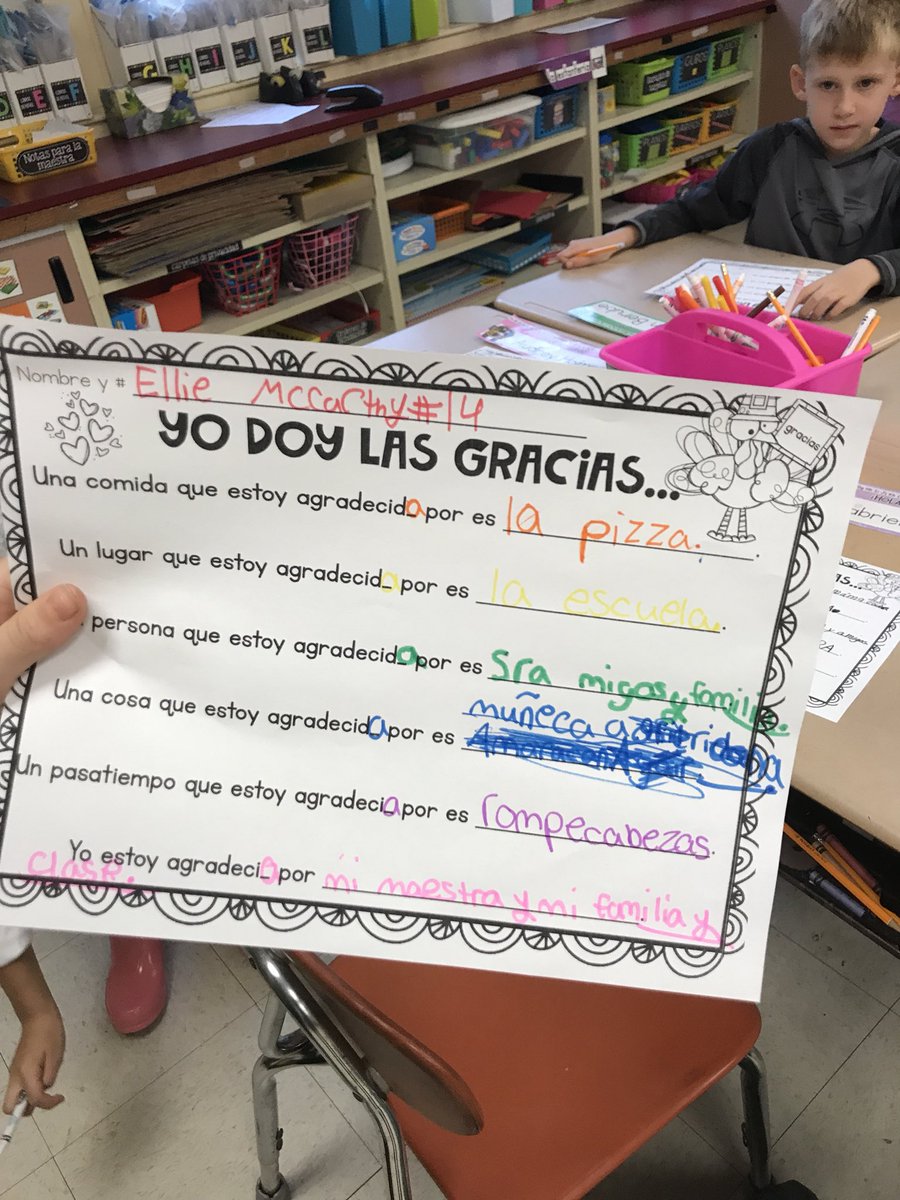 D E F
G H I J K L
Notas para la maestra
Nombre y # Ellie McCaCthy #14
YO DOY LAS GRACIAS...
gracias
Una comida que estoy agradecida por es la pizza.
Un lugar que estoy agradecida por es la escuela.
persona que estoy agradecida por es Sra migos y familia.
Una cosa que estoy agradecida por es muñeca
Un pasatiempo que estoy agradecia por es rompecabezas.
Yo estoy agradecia por mi maestra y mi familia y
clase.
¡HOLA
abrie
AS...